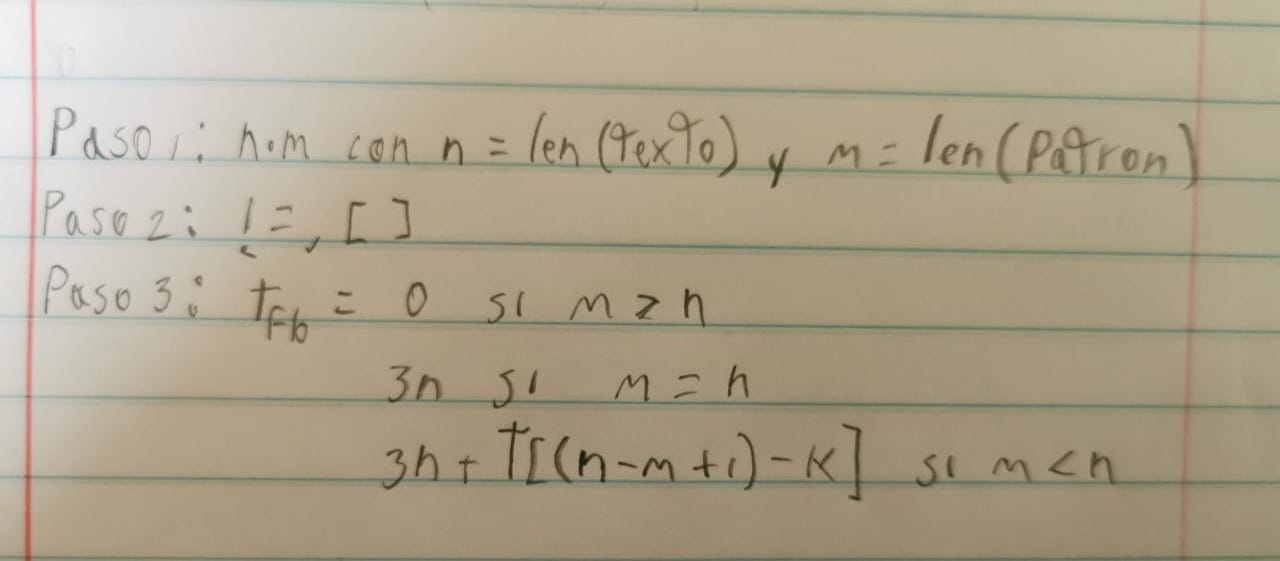 Paso 1: n·m con n = len(texto) y m = len(Patron)
Paso 2: !=, []
Paso 3: tFb = 0 si m > n
3n si m = n
3n + T[(n-m+1)-K] si m < n